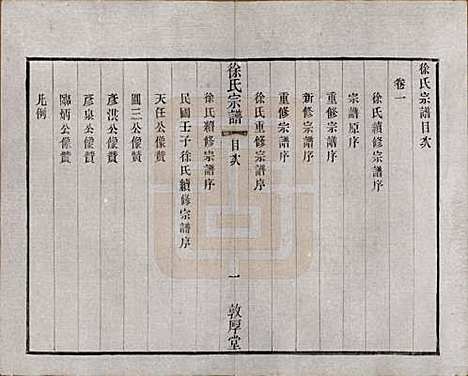 徐氏宗譜目次
卷一
徐氏續修宗譜序
宗譜原序
重修宗譜序
新修宗譜序
重修宗譜序
徐氏重修宗譜序
徐氏宗譜
目次
一
敦厚堂
徐氏續修宗譜序
民國壬子徐氏續修宗譜序
天任公像贊
圓三公像贊
彥洪公像贊
彥泉公像贊
炳公像贊
凡例